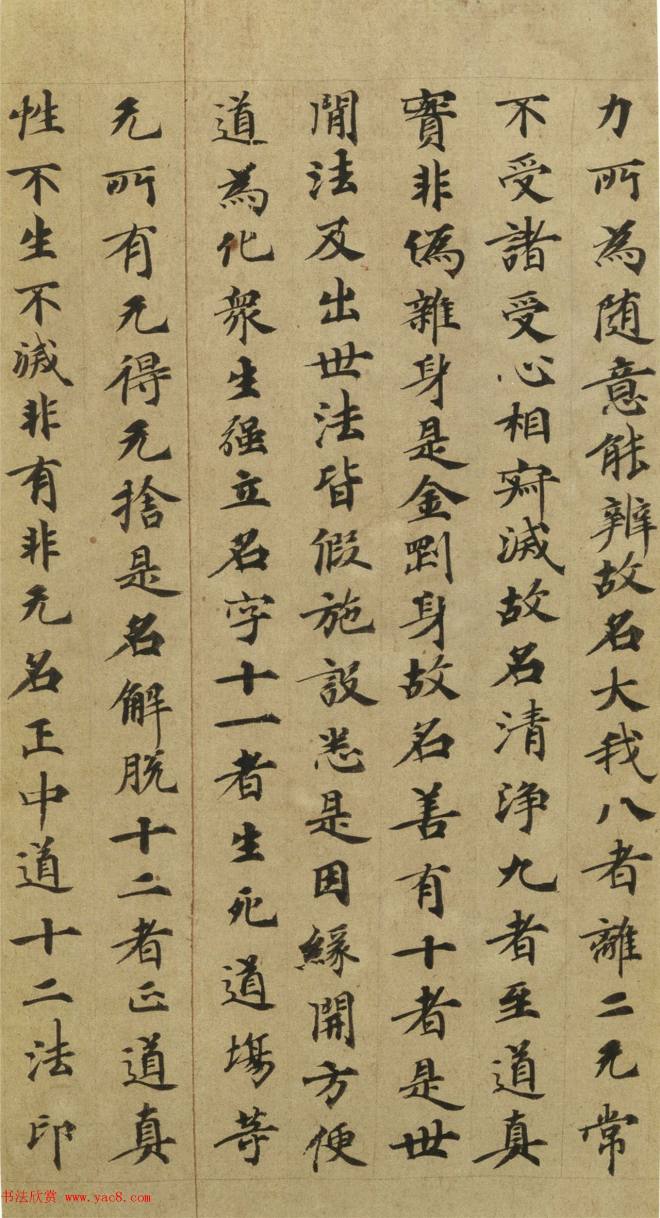 力所為随意能辨故名大我八者離二无常
不受諸受心相寂滅故名清浄九者至道真
實非偽雜身是金剛身故名善有十者是世
閒法及出世法皆假施設悉是因緣開方便
道為化衆生强立名字十一者生死道場等
无所有无得无捨是名解脱十二者正道真
性不生不滅非有非无名正中道十二法印
书法欣赏 www.yac8.com